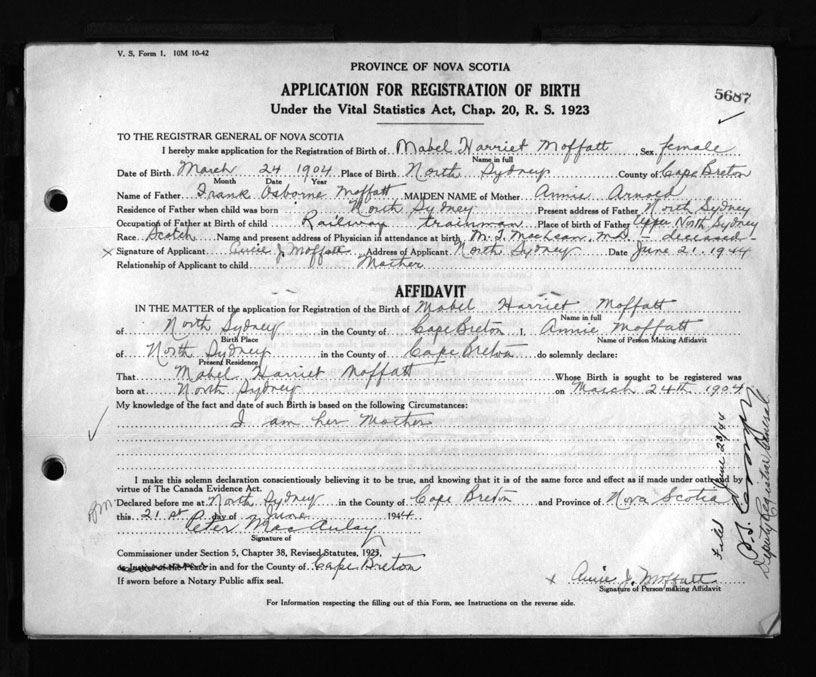 V. S. Form 1. 10M 10-42
PROVINCE OF NOVA SCOTIA
APPLICATION FOR REGISTRATION OF BIRTH
5687
Under the Vital Statistics Act, Chap. 20, R. S. 1923
TO THE REGISTRAR GENERAL OF NOVA SCOTIA
I hereby make application for the Registration of Birth of Mabel Harriet Moffatt Sex female
Name in full
Date of Birth March 24 1904 Place of Birth North Sydney County of Cape Breton
Month Date Year
Name of Father Frank Osborne Moffatt MAIDEN NAME of Mother Annie Arnold
Residence of Father when child was born North Sydney Present address of Father North Sydney
Occupation of Father at Birth of child Railway trainman Place of birth of Father Upper North Sydney
Race Scotch Name and present address of Physician in attendance at birth M. T. MacLean, M.D. - deceased
X Signature of Applicant Annie J. Moffatt Address of Applicant North Sydney Date June 21. 1944
Relationship of Applicant to child Mother
AFFIDAVIT
IN THE MATTER of the application for Registration of the Birth of Mabel Harriet Moffatt
Name in full
of North Sydney in the County of Cape Breton I, Annie Moffatt
Birth Place Name of Person Making Affidavit
of North Sydney in the County of Cape Breton do solemnly declare:
Present Residence
That Mabel Harriet Moffatt Whose Birth is sought to be registered was
born at North Sydney on March 24th 1904
My knowledge of the fact and date of such Birth is based on the following Circumstances:
I am her Mother
I make this solemn declaration conscientiously believing it to be true, and knowing that it is of the same force and effect as if made under oath by
virtue of The Canada Evidence Act.
Declared before me at North Sydney in the County of Cape Breton and Province of Nova Scotia
this 21st day of June 1944
Peter MacAulay
Signature of
Commissioner under Section 5, Chapter 38, Revised Statutes, 1923,
in and for the County of Cape Breton
If sworn before a Notary Public affix seal.
X Annie J. Moffatt
Signature of Person making Affidavit
For Information respecting the filling out of this Form, see Instructions on the reverse side.
Filed June 23/44
Deputy Registrar General